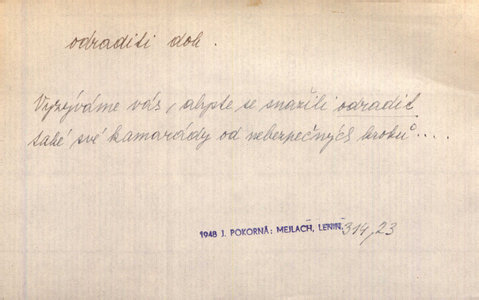 odraditi dok.
Vyzýváme vás, abyste se snažili odradit
také své kamarády od nebezpečných kroků....
1948 J. POKORNÁ: MEJLACH, LENIN, 314,23